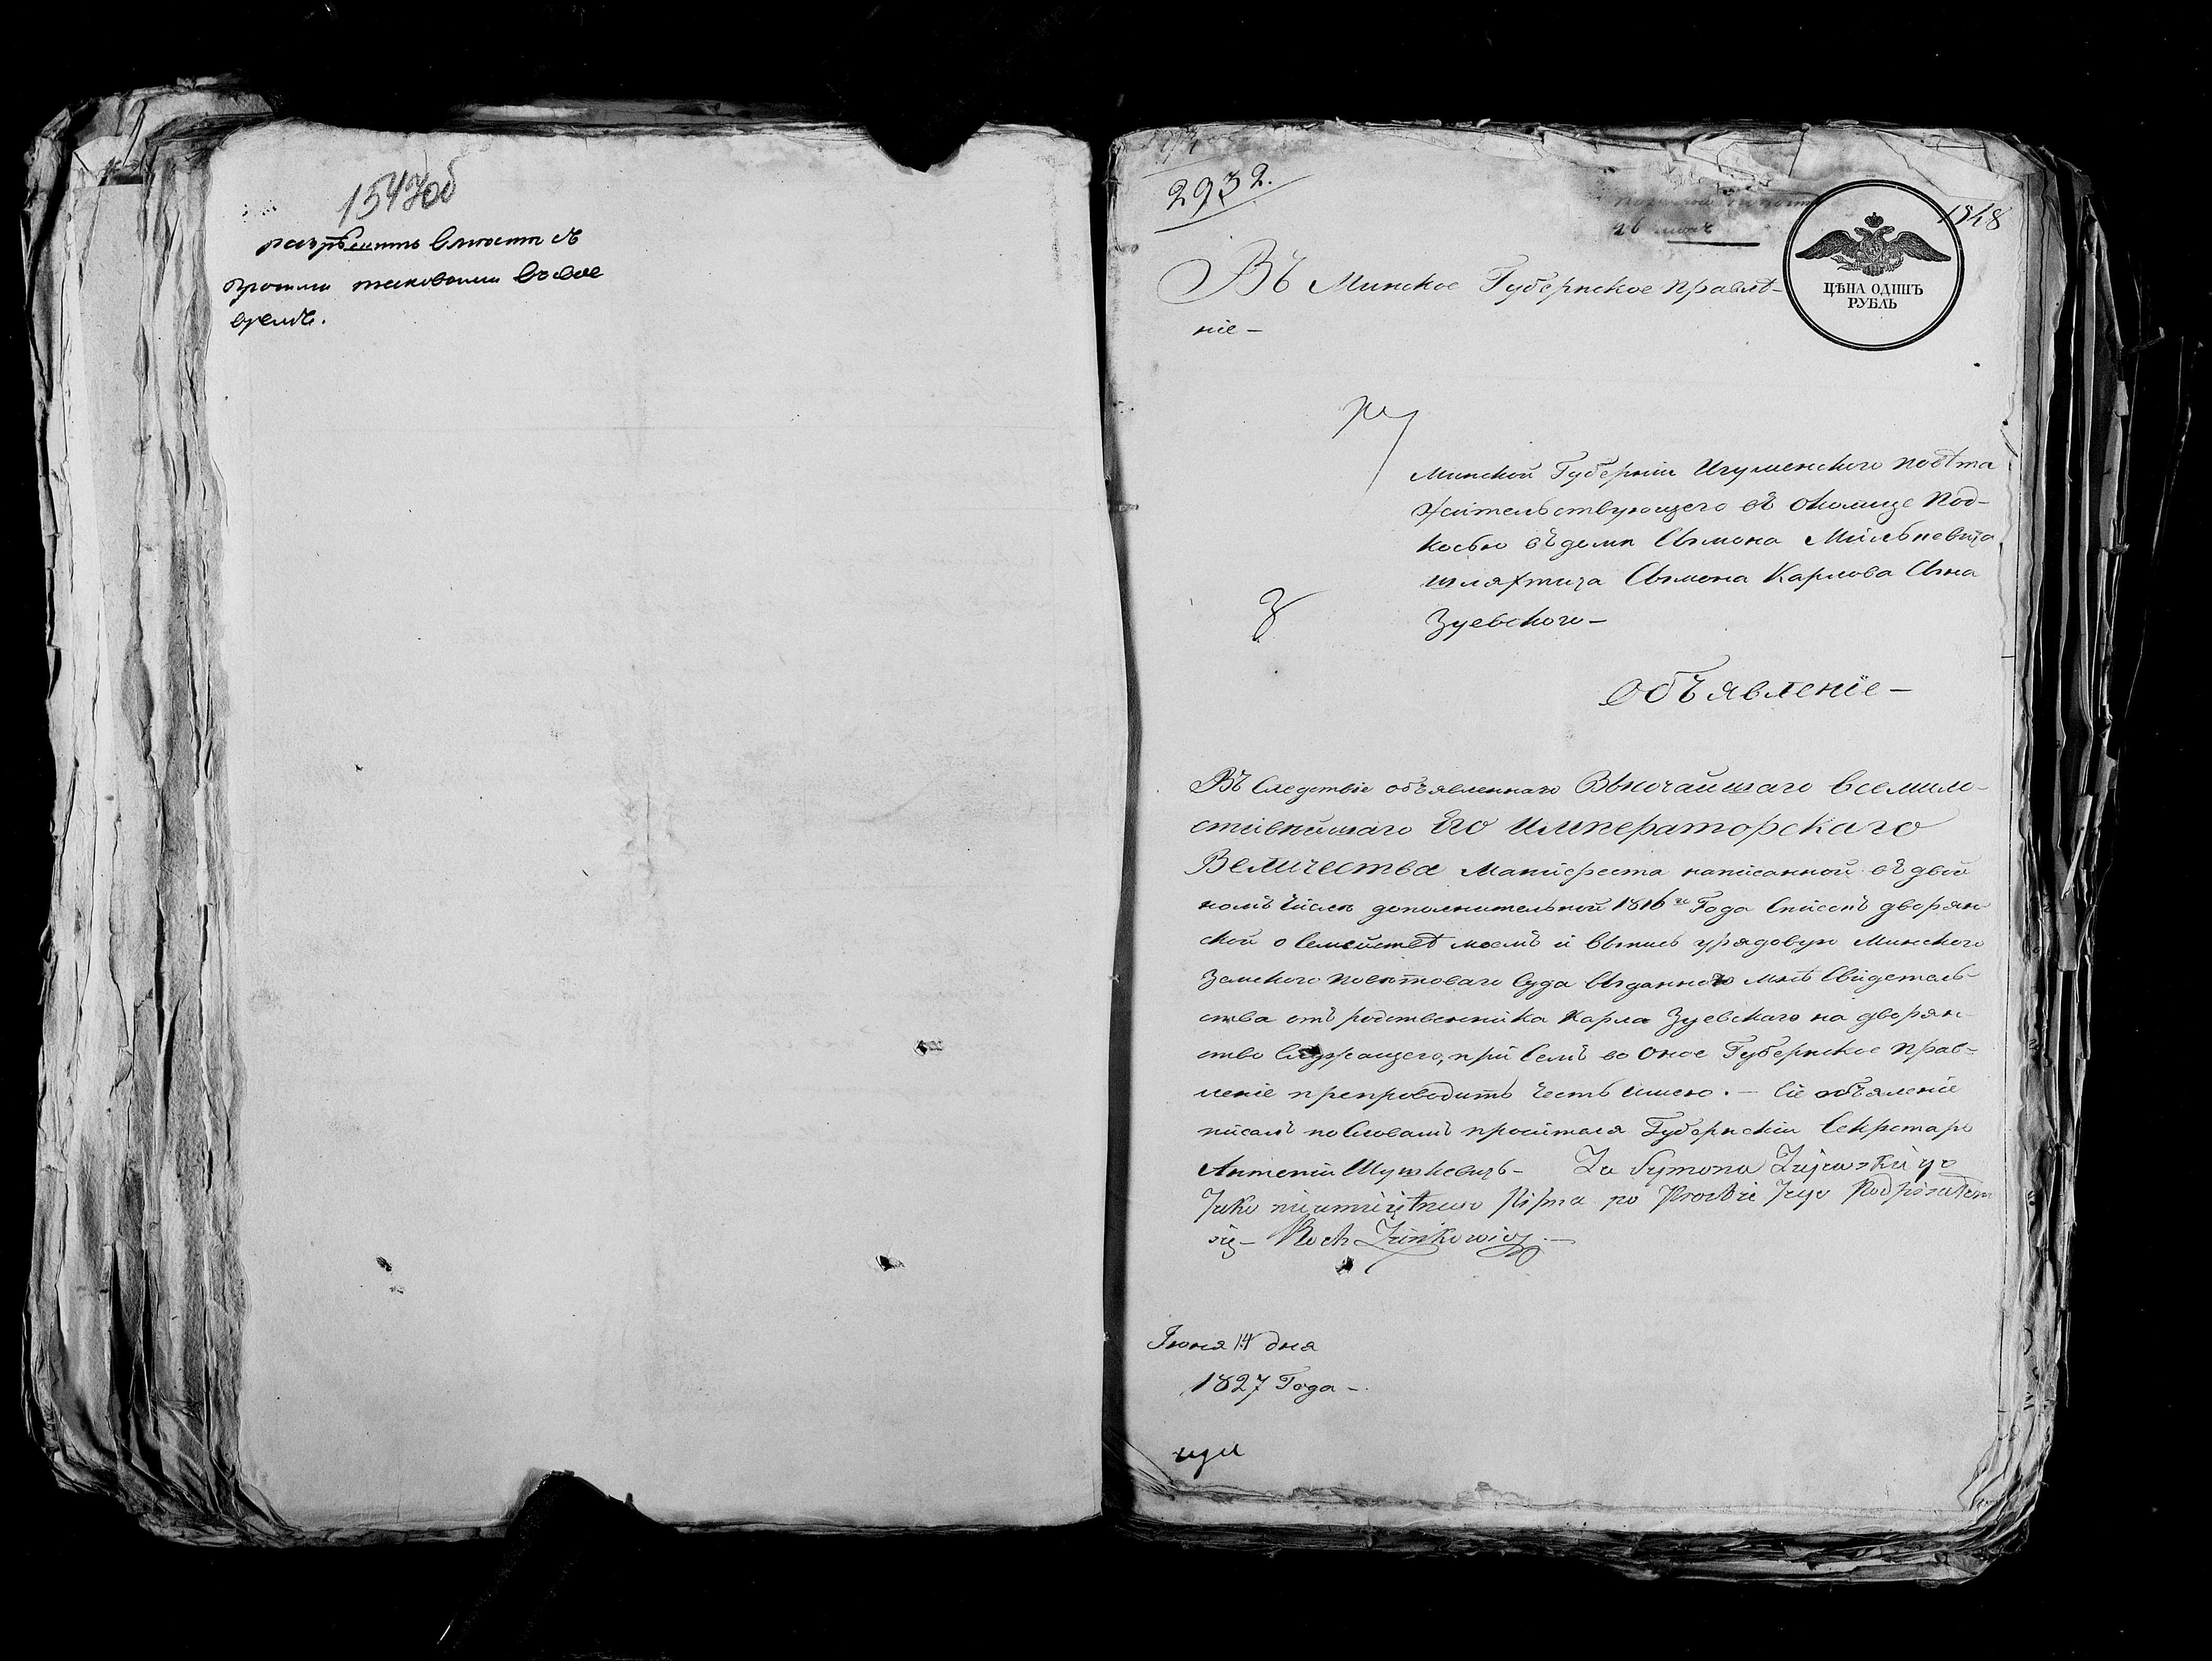 1547об
разрѣшить вместѣ съ
другими таковыми въ свое
время.
2932.
1548
26 июня
ЦѢНА ОДИНЪ
РУБЛЬ
Въ Минское Губернское правлѣ-
ніе –
Минской Губерніи Игуменского повѣта
жительствующего въ околице Под-
косью въ доми Сымона Мильkевича
шляхтича Сымона Карлова Сына
Зуевского –
Объявленіе –
Въ Следствіе объявленнаго Высочайшаго всемило-
стивейшаго Его Императорскаго
Величества Манифеста написанной въ двой
номъ числе дополнительной 1816го Года Списокъ дворян
ской о Семействѣ моемъ и выпись урядовую Минского
Земского поветоваго Суда выданного мнѣ Свидетель-
ства отъ родственника Карла Зуевскаго на дворян-
ство Служащего, при Семъ во Оное Губернское прав-
леніе препроводить честь имею. – Сіе объявленіе
писалъ по Словамъ просителя Губернскій Секретарь
Антоній Шушкевичъ – Za Symona Zujewskiego
Jako nieumieiętnego Pisma po Proźbie Jego Podpisałem
się – Roch Zienkowicz. –
Іюня 14 дня
1827 Года –